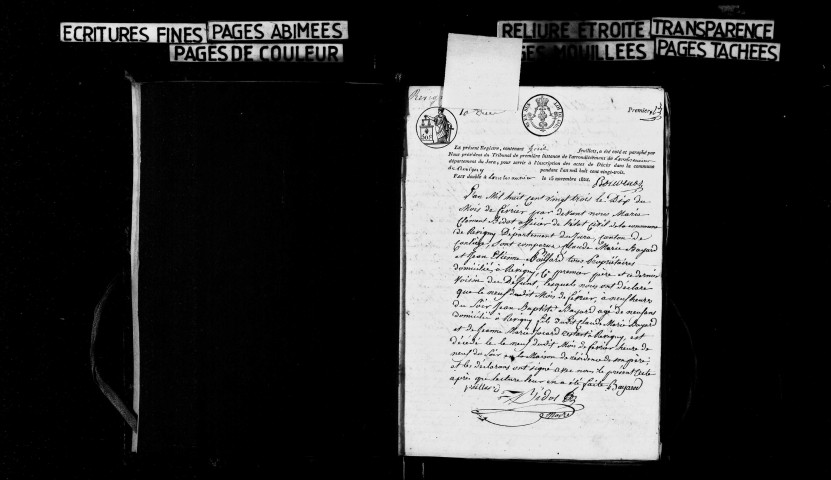 ECRITURES FINES PAGES ABIMEES
PAGES DE COULEUR
RELIURE ETROITE TRANSPARENCE
MOUILLEES PAGES TACHEES
Premier
Le présent Registre, contenant feuillets, a été coté et paraphé par
Nous président du Tribunal de première Instance de l'arrondissement de
département du Jura, pour servir à l'inscription des actes de Décès dans la commune
de Revigny pendant l'an mil huit cent vingt-trois.
Fait double à Lons le 15 novembre 1822.
L'an Mil huit cent vingt trois le Dix du
Mois de février par devant nous Marie
Clément Bidot officier de l'état civil de la commune
de Revigny Département du Jura, canton de
Conliège, Sont comparus Claude Marie Bayard
et Jean Etienne tous Propriétaires
domiciliés à Revigny, le premier père et ce dernier
voisin du Défunt, lesquels nous ont déclaré
que le neuf dudit Mois de février, à neuf heures
du Soir Jean Baptiste Bayard agé de neuf ans
domicilié à Revigny fils dudit Claude Marie Bayard
et de Jeanne Marie à Revigny, est
décédé le neuf dudit Mois de février heure de
neuf du Soir en la Maison de résidence de son père;
et les déclarans ont signé avec nous le présent acte
après que lecture leur en a été faite Bayard
Bidot